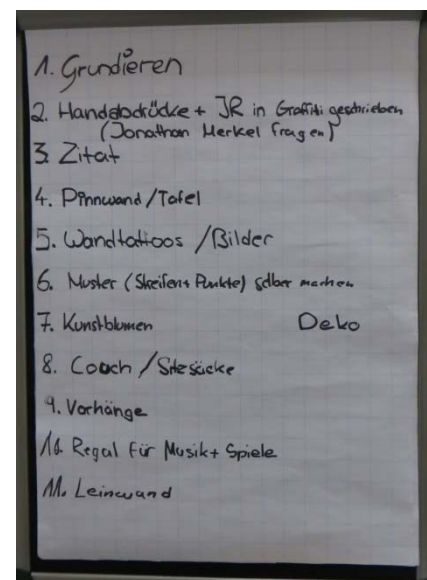 1. Grundieren
2. Handabdrücke + JR in Graffiti geschrieben
(Jonathan Merkel fragen)
3. Zitat
4. Pinnwand/Tafel
5. Wandtattoos /Bilder
6. Muster (Streifen+ Punkte) selber machen
7. Kunstblumen Deko
8. Couch /Sitzsäcke
9. Vorhänge
10. Regal für Musik+ Spiele
11. Leinwand